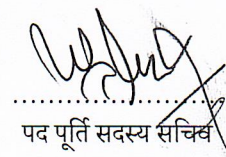 पद पूर्ति सदस्य सचिव